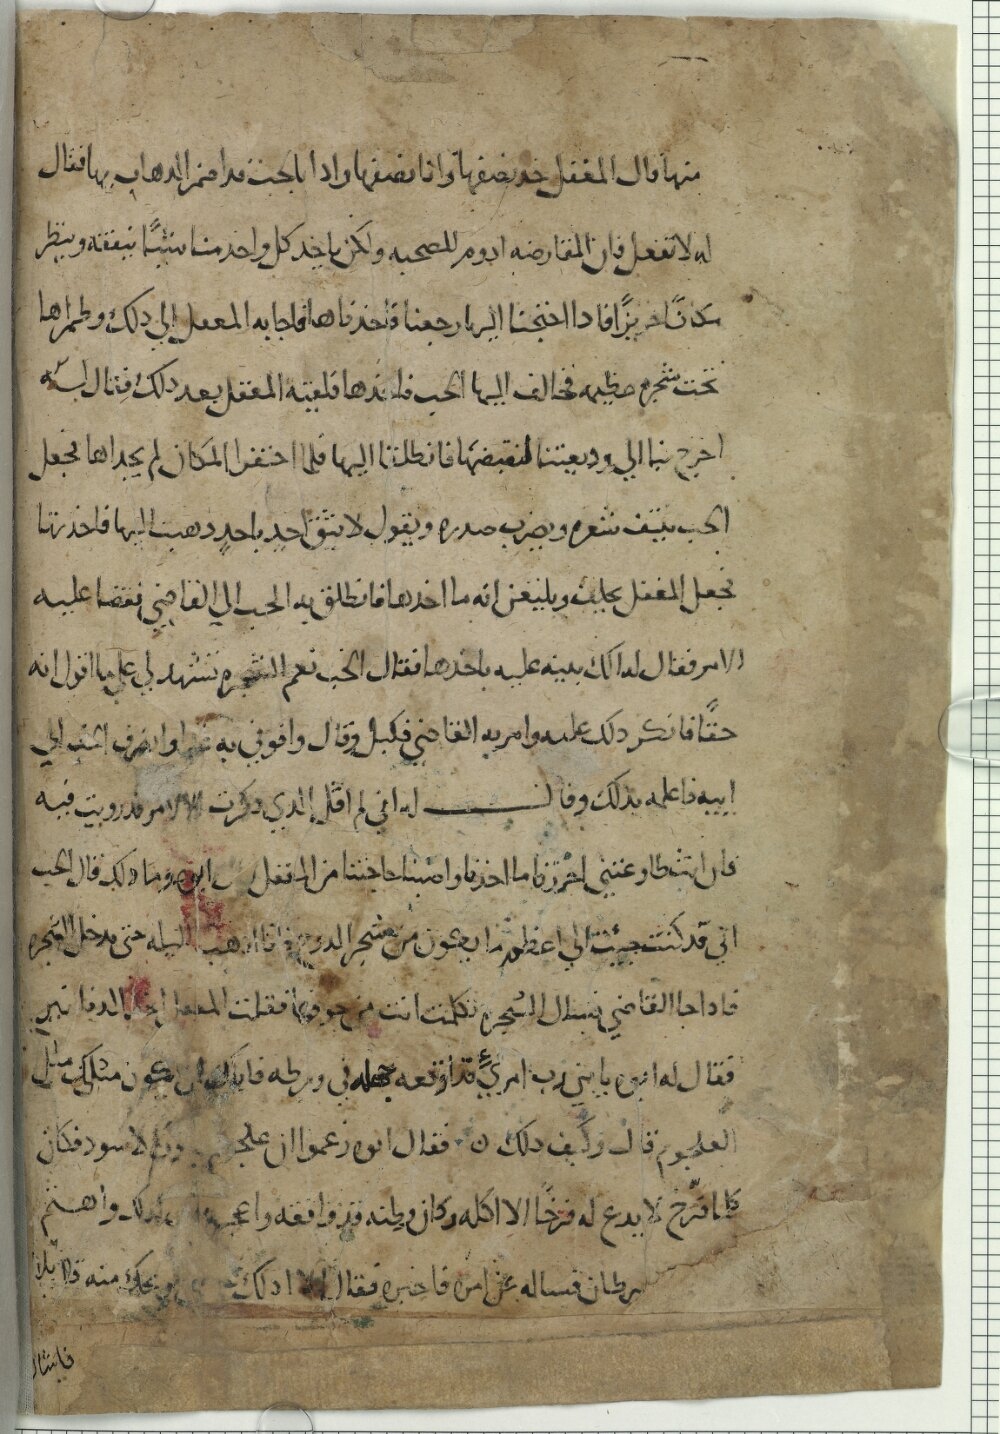 منها قال المغفل خد نصفها وانا نصفها واذا بالخب قد اضمر الدهاب بها فقال
له لا تفعل فان المفارضه ادوم للصحبه ولكن ياخد كل واحد منا شيئًا ينفقه وينظر
مكانًا حريزًا فادا احتجنا اليها رجعنا فاخدناها فاجابه المغفل الي دلك وطمراها
تحت شجره عظيمه فخالف اليها الخب فاخدها فلقيه المغفل بعد دلك فقال له
اخرج بنا الي وديعتنا لنقبضها فانطلقا اليها فلما احتفرا المكان لم يجداها فجعل
الخب ينتف شعره ويضرب صدره ويقول لا يثق احد باحدٍ دهبت اليها فاخدتها
فجعل المغفل يحلف ويلتعن انه ما اخدها فانطلق به الخب الي القاضي فقصا عليه
الامر فقال له الك بينه عليه باخدها فقال الخب نعم الشجره تشهد لي علي ما اقول انه
حقًا فانكر دلك عليه وامر به القاضي فكبل وقال وافوني به غدا وانصرف الخب الي
ابيه فاعلمه بدلك وقال له اني لم اقل الدي دكرت الا لامر قد رويت فيه
فان انت طاوعتني احرزنا ما اخدنا واصبنا حاجتنا من المغفل ابوه وما دلك قال الخب
اني قد كنت جيت الي اعظم ما يكون من شجر الدوح فانا ادهب الليله حتي تدخل الشجره
فادا جا القاضي فسال الشجره تكلمت انت من جوفها فقلت المغفل اخد الدنانير
فقال له ابوه يا بني رب امريٍ قد اوقعه جهله في ورطه فاياك ان يكون مثلك مثل
العلجوم قال وكيف دلك ن فقال ابوه زعموا ان علجوم الاسود فكان
كلما فرّخ لا يدع له فرخًا الا اكله وكان وطنه قد وافقه لدلك واهتم
سرطان فساله عن امره فاخبره فقال الا ادلك منه قال بلا
فانشا